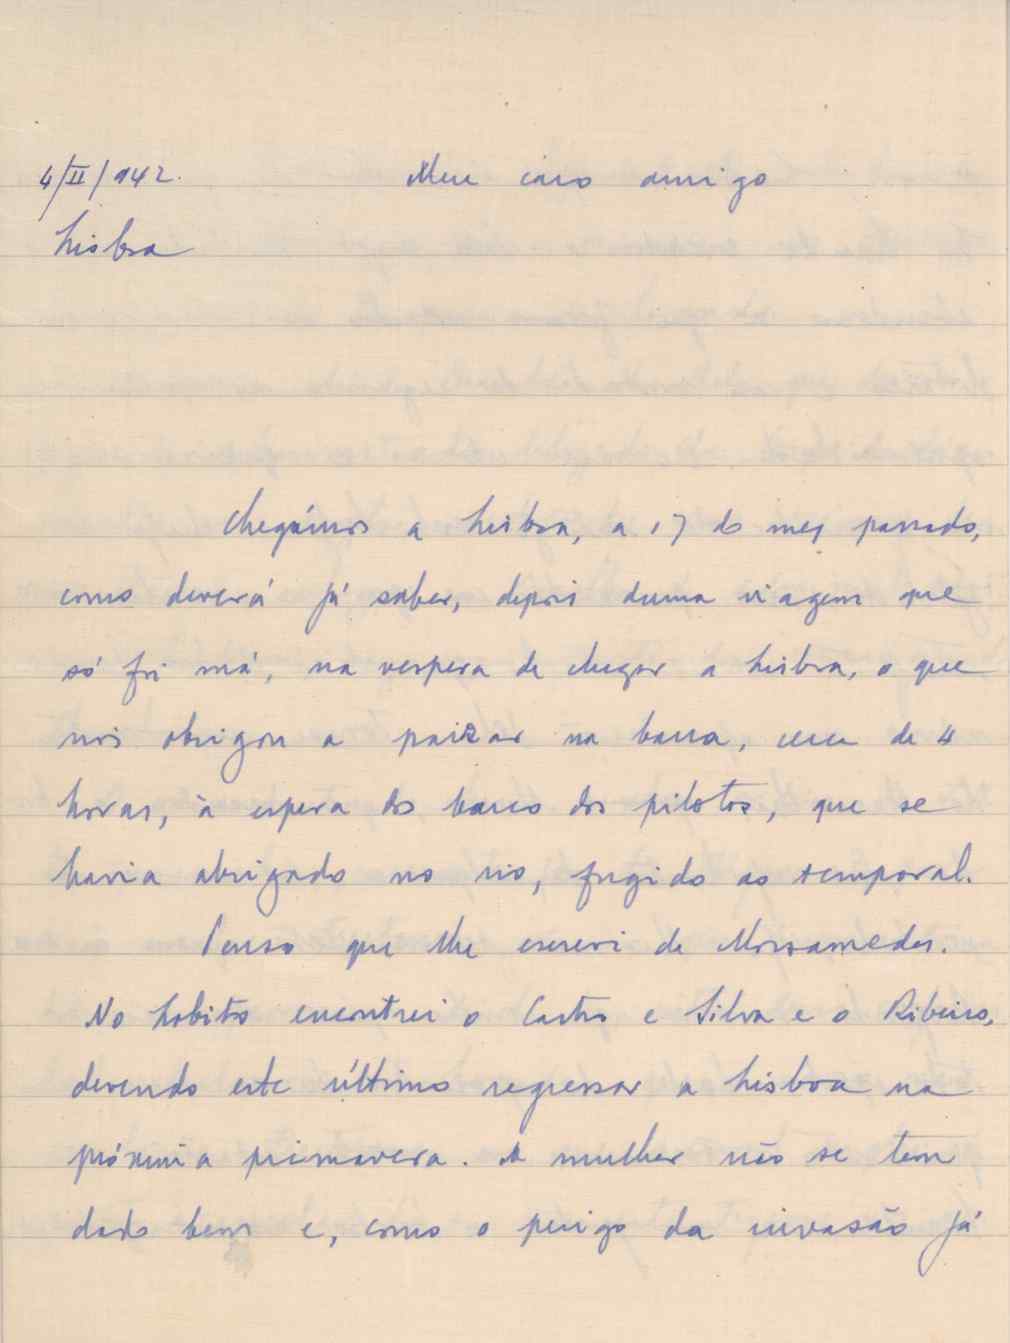 4/II/942.
Meu caro amigo
Lisboa
Chegámos a Lisboa, a 17 do mez passado,
como deverá já saber, depois duma viagem que
só foi má, na vespera de chegar a Lisboa, o que
nos obrigou a pairar na barra, cerca de 4
horas, à espera do barco dos pilotos, que se
havia abrigado no rio, fugido ao temporal.
Penso que lhe escrevi de Mossamedes.
No Lobito encontrei o Castro e Silva e o Ribeiro,
devendo este último regressar a Lisboa na
próxima primavera. A mulher não se tem
dado bem e, como o perigo da invasão já